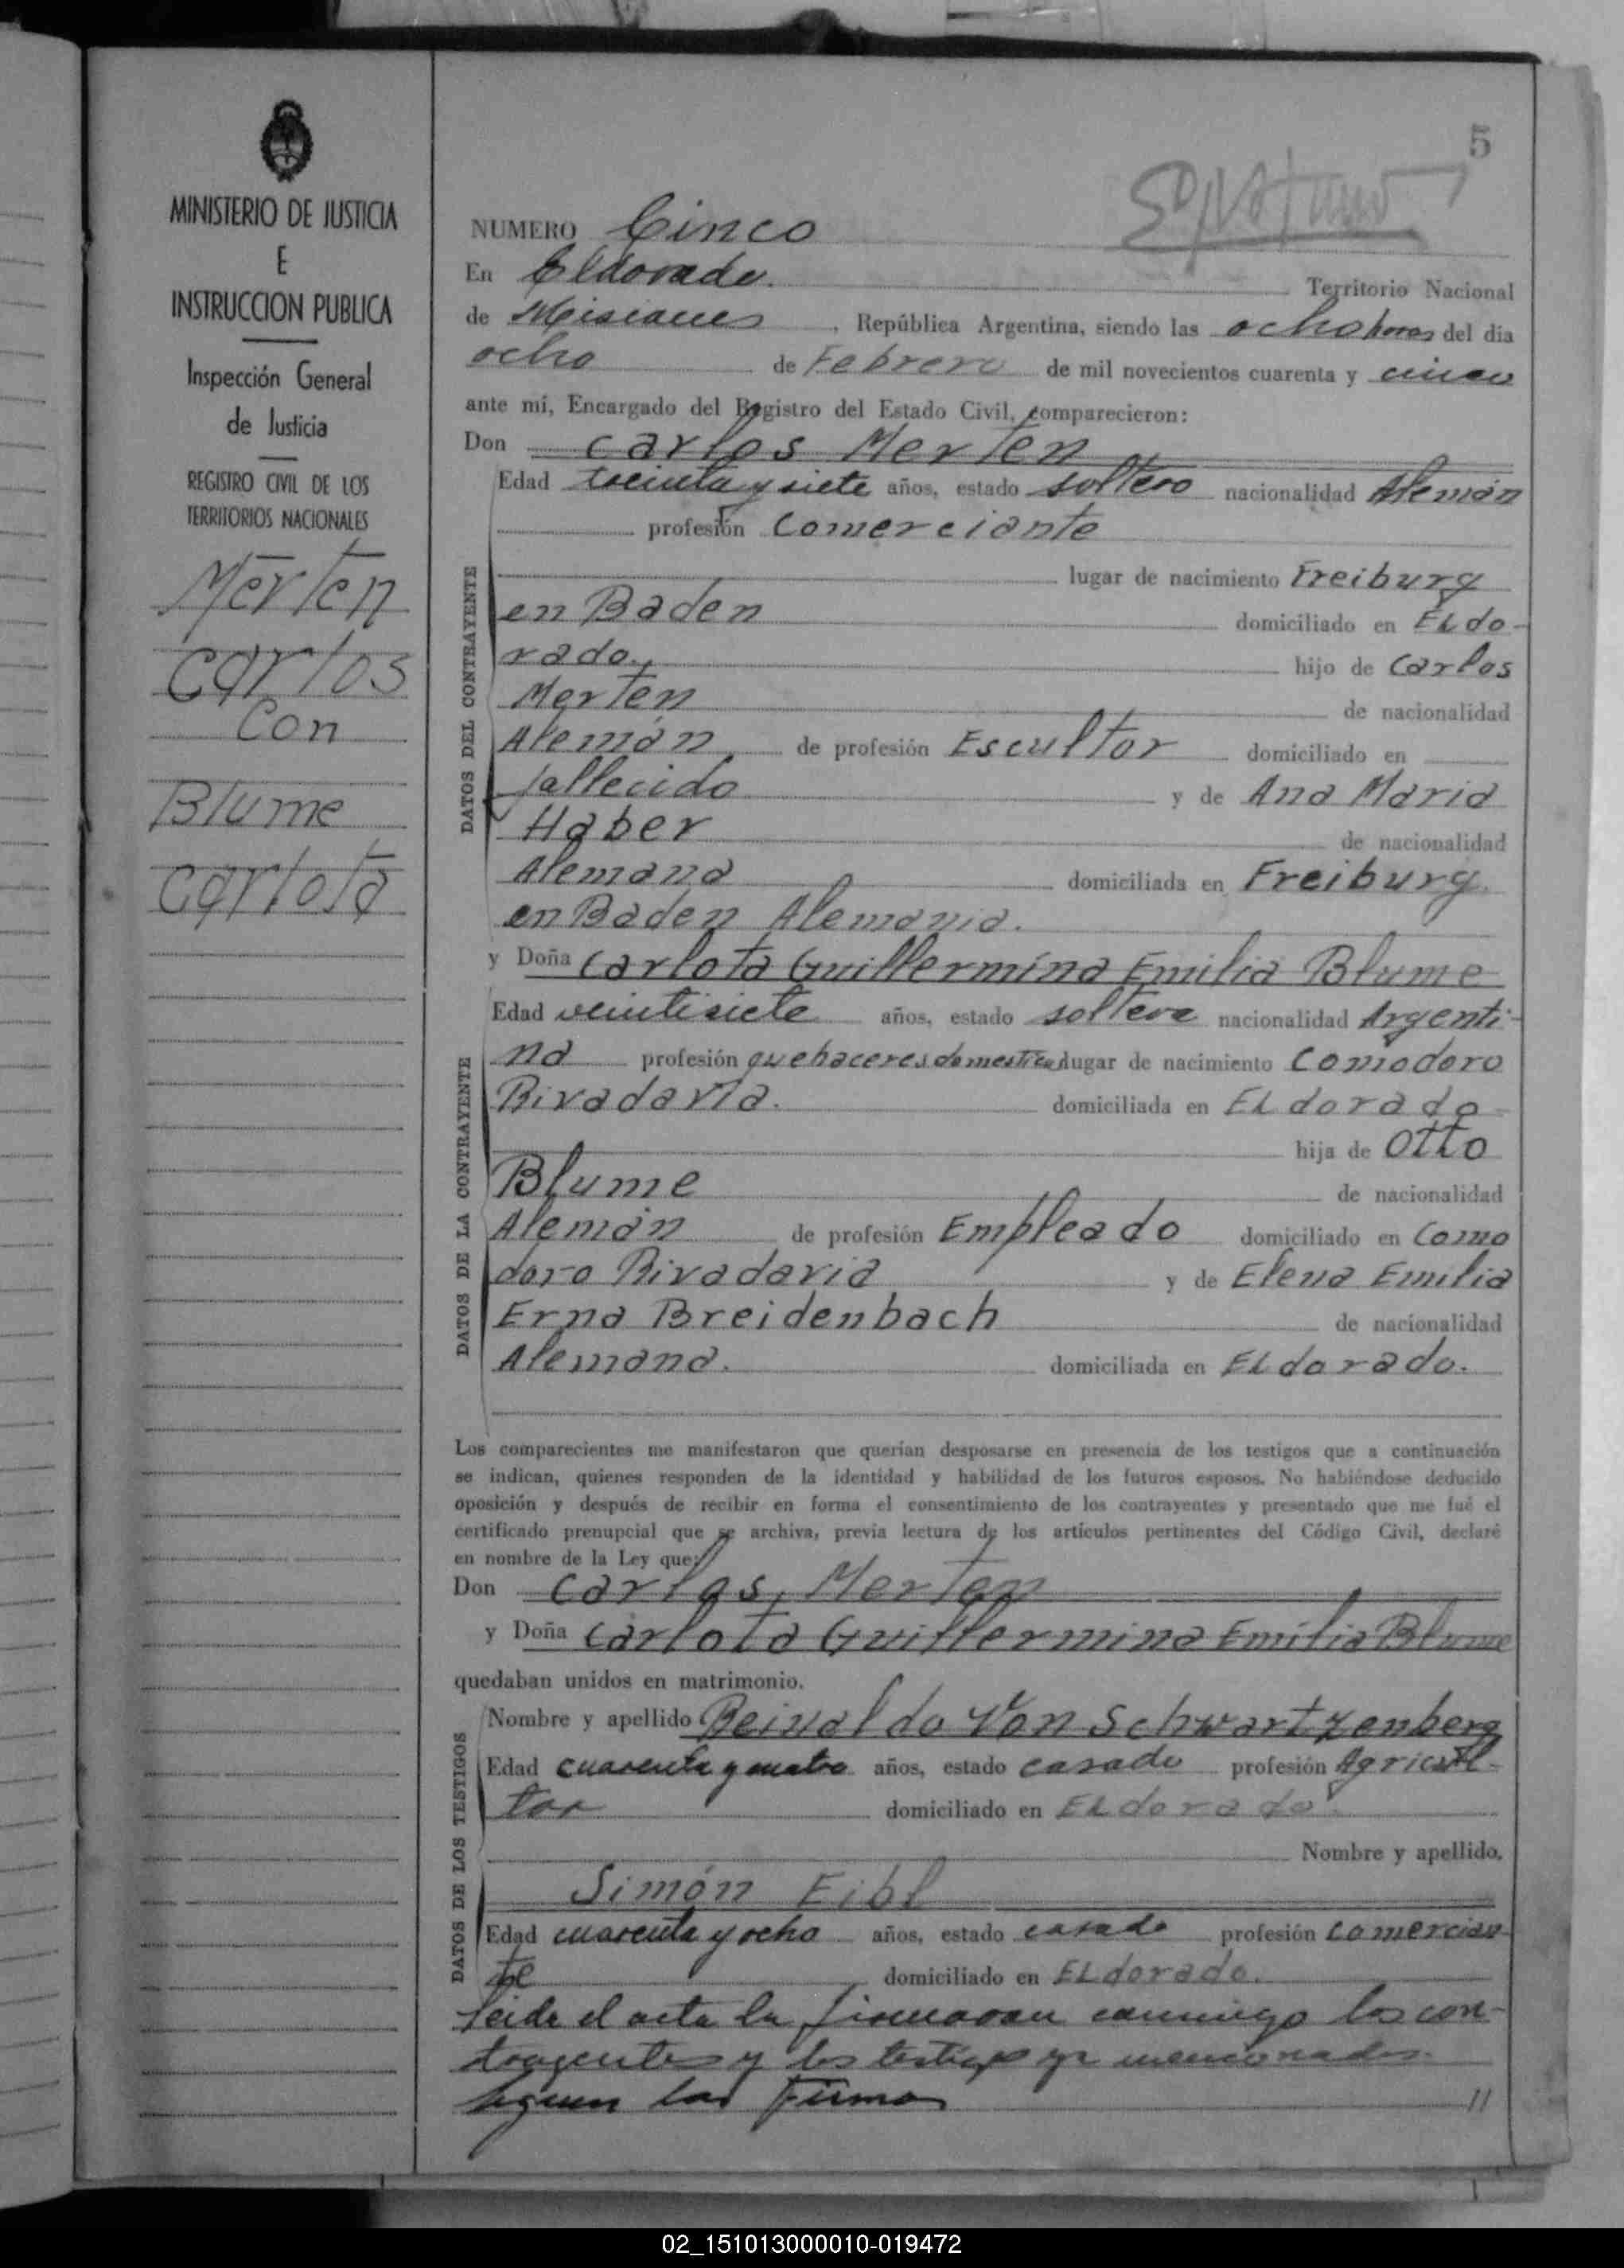 5
MINISTERIO DE JUSTICIA
E
INSTRUCCION PUBLICA
Inspección General
de Justicia
REGISTRO CIVIL DE LOS
TERRITORIOS NACIONALES
Merten
Carlos
Con
Blume
Carlota
NUMERO Cinco
En Eldorado. Territorio Nacional
de Misiones, República Argentina, siendo las ocho horas del día
ocho de Febrero de mil novecientos cuarenta y cinco
ante mí, Encargado del Registro del Estado Civil, comparecieron:
Don Carlos Merten
DATOS DEL CONTRAYENTE
Edad treinta y siete años, estado soltero nacionalidad Alemán
profesión Comerciante
lugar de nacimiento Freiburg
en Baden domiciliado en Eldo-
rado. hijo de Carlos
Merten de nacionalidad
Alemán de profesión Escultor domiciliado en
fallecido y de Ana Maria
Haber de nacionalidad
Alemana domiciliada en Freiburg
en Baden Alemania.
y Doña Carlota Guillermina Emilia Blume
DATOS DE LA CONTRAYENTE
Edad veintisiete años, estado soltera nacionalidad Argenti-
na profesión quehaceres domesticos lugar de nacimiento Comodoro
Rivadavia. domiciliada en Eldorado
hija de Otto
Blume de nacionalidad
Alemán de profesión Empleado domiciliado en Como
doro Rivadavia y de Elena Emilia
Erna Breidenbach de nacionalidad
Alemana. domiciliada en Eldorado.
Los comparecientes me manifestaron que querían desposarse en presencia de los testigos que a continuación
se indican, quienes responden de la identidad y habilidad de los futuros esposos. No habiéndose deducido
oposición y después de recibir en forma el consentimiento de los contrayentes y presentado que me fué el
certificado prenupcial que se archiva, previa lectura de los artículos pertinentes del Código Civil, declaré
en nombre de la Ley que:
Don Carlos Merten
y Doña Carlota Guillermina Emilia Blume
quedaban unidos en matrimonio.
DATOS DE LOS TESTIGOS
Nombre y apellido Reinaldo Von Schwartzenberg
Edad cuarenta y cuatro años, estado casado profesión Agricul-
tor domiciliado en Eldorado.
Nombre y apellido.
Simón Eibl
Edad cuarenta y ocho años, estado casado profesión comercian
te domiciliado en Eldorado.
Leida el acta la firmaron conmigo los con-
trayentes y los testigos ya mencionados.
Siguen las Firmas //
02_151013000010-019472